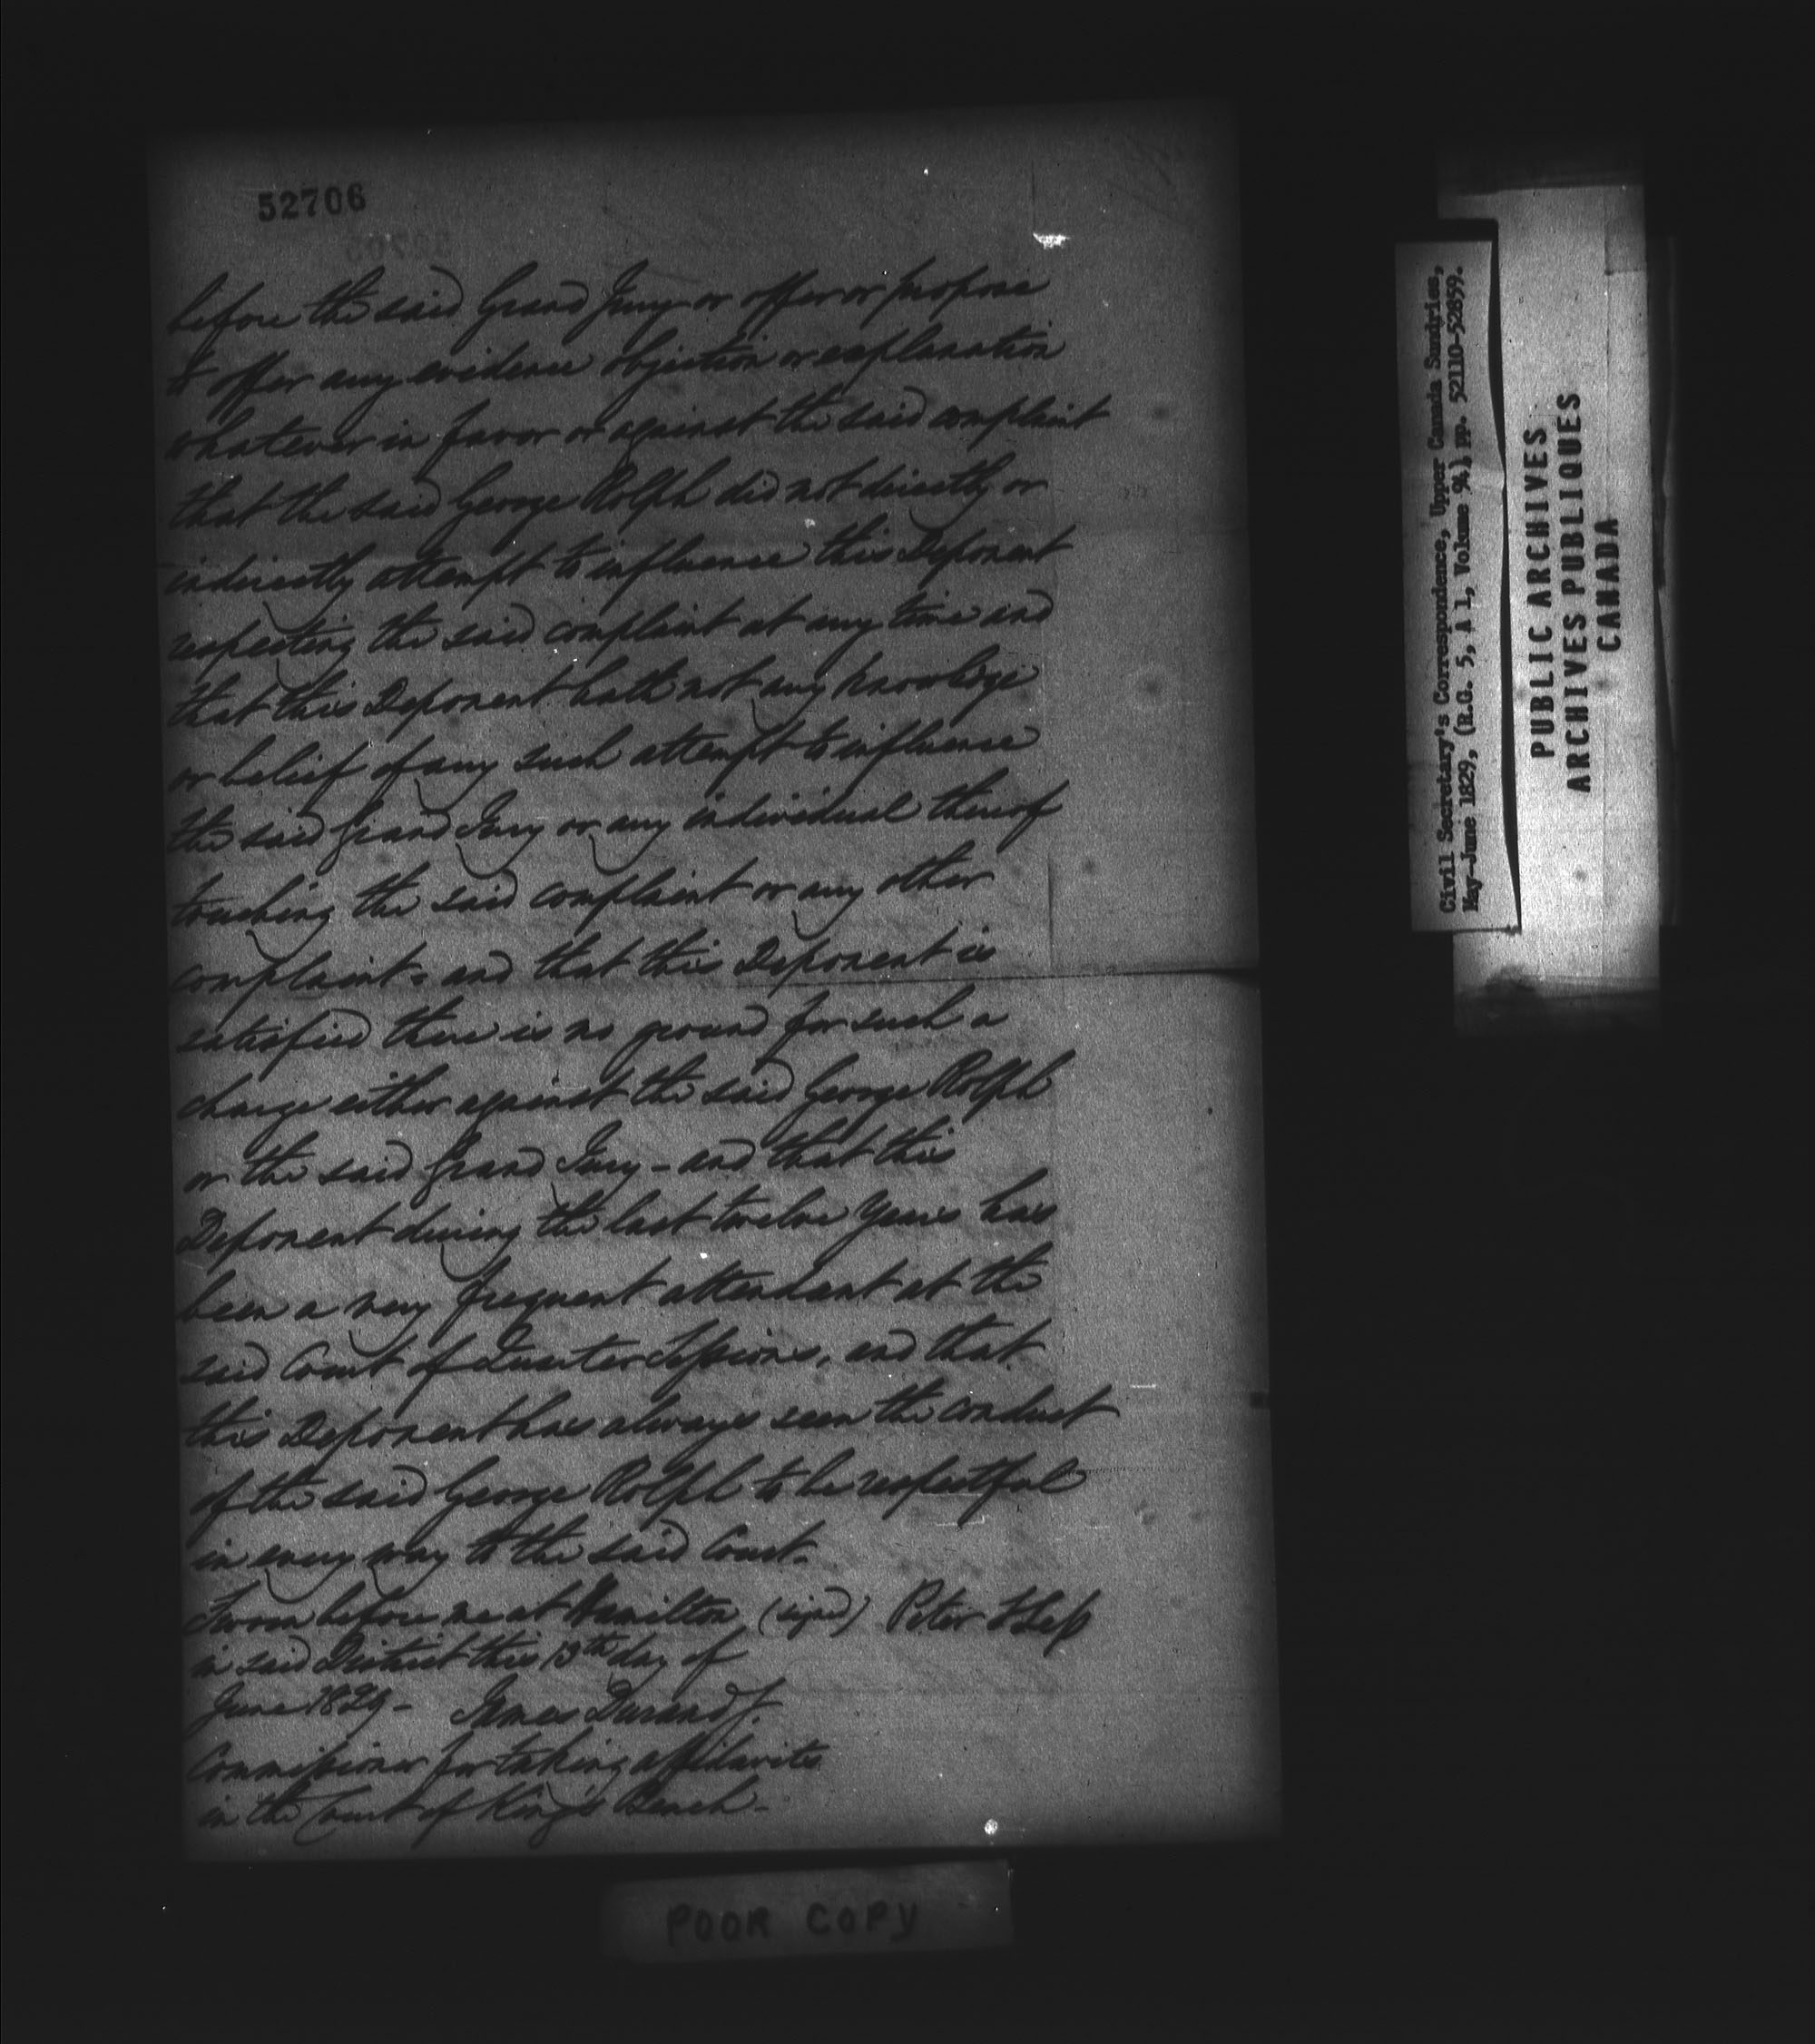 52706
before the said Grand Jury or offer or propose
to offer any evidence objection or explanation
whatever in favor or against the said complaint
that the said George Rolph did not directly or
indirectly attempt to influence this Deponent
respecting the said complaint at any time and
that this Deponent hath not any knowledge
or belief of any such attempt to influence
the said Grand Jury or any individual thereof
touching the said complaint or any other
complaint - and that this Deponent is
satisfied there is no ground for such a
charge either against the said George Rolph
or the said Grand Jury - and that this
Deponent during the last twelve years has
been a very frequent attendant at the
said Court of Quarter Sessions, and that
this Deponent has always seen the conduct
of the said George Rolph to be respectful
in every way to the said Court.
Sworn before me at Hamilton (signed) Peter Hess
in said District this 13th day of
June 1829 - James Durand J.
Commissioner for taking affidavits
in the Court of King's Bench -
POOR COPY
Civil Secretary's Correspondence, Upper Canada Sundries,
May-June 1829, (R.G. 5, A 1, Volume 94), pp. 52110-52859.
PUBLIC ARCHIVES
ARCHIVES PUBLIQUES
CANADA